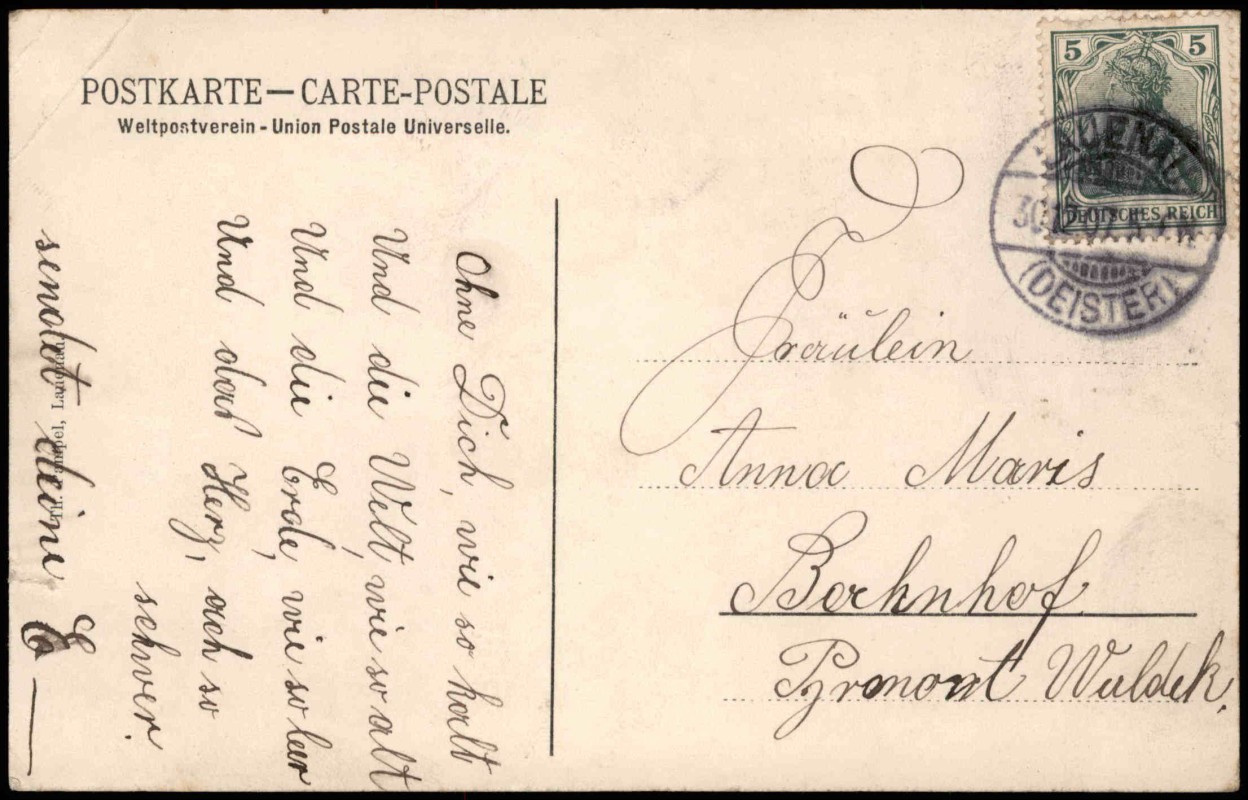 POSTKARTE — CARTE-POSTALE
Weltpostverein - Union Postale Universelle.
5 5
DEUTSCHES REICH
(DEISTER)
Ohne Dich, wie so kalt
Und die Welt, wie so alt
Und die Erde, wie so leer
Und das Herz, ach so
schwer.
sendet deine E
Fräulein
Anna Maris
Bahnhof
Pyrmont Waldek.